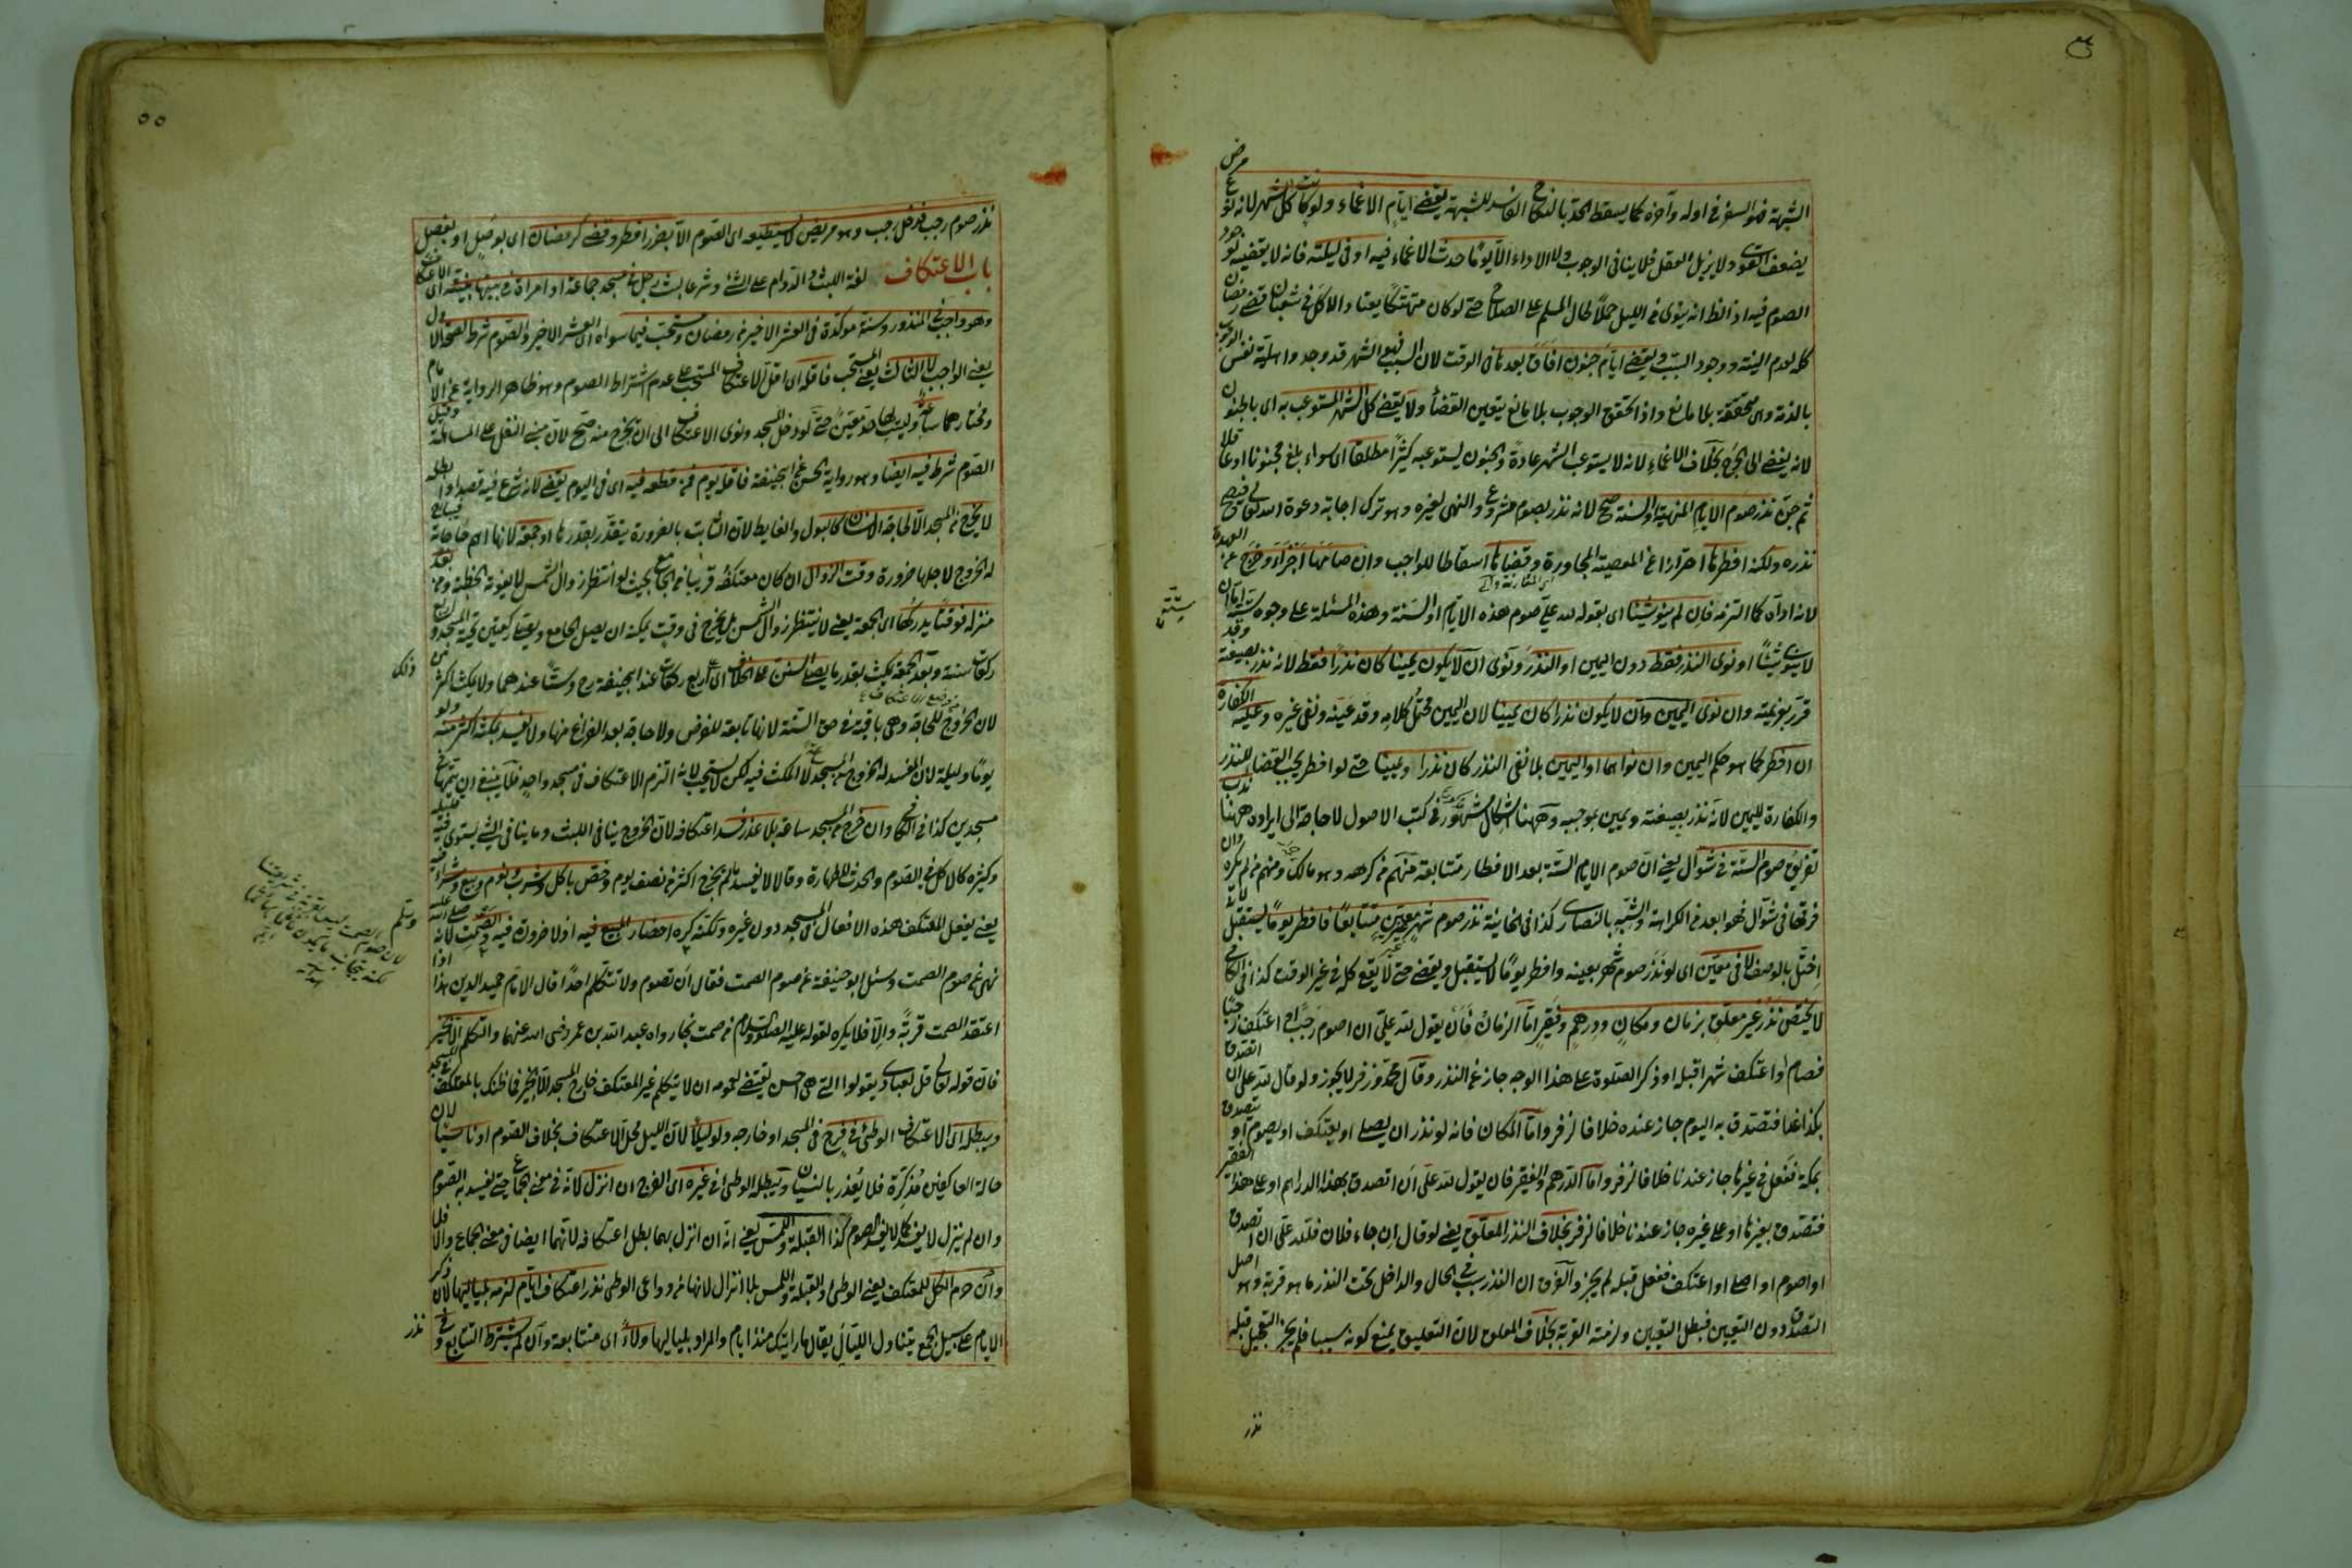 الشبهة هو السفر في اوله وآخره كما يسقط الحد بالنكاح الفاسد للشبهة يقضي ايام الاغماء ولو كانت كل الشهر لانه نوع مرض
يضعف القوى ولا يزيل العقل فلا ينافي الوجوب ولا الاداء الا يوما حدث الاغماء فيه او في ليلته فانه لا يقضيه لوجود
الصوم فيه اذ الظاهر انه ينوي في الليل حملا لحال المسلم على الصلاح حتى لو كان متهتكا يعتاد الاكل في شعبان قضى رمضان
كله لعدم النية ووجود السبب ويقضي ايام جنون افاق بعدها في الوقت لان السبب وهو الشهر قد وجد واهلية نفس الوجوب
بالذمة وهي متحققة بلا مانع واذا تحقق الوجوب بلا مانع يتعين القضاء ولا يقضي كل الشهر المستوعب به اي بالجنون
لانه يفضي الى الحرج بخلاف الاغماء لانه لا يستوعب الشهر عادة والجنون يستوعبه كثيرا مطلقا اي سواء بلغ مجنونا او عاقلا
ثم جن نذر صوم الايام المنهية او السنة صح لانه نذر بصوم مشروع والنهي لغيره وهو ترك اجابة دعوة الله تعالى فيصح
نذره ولكنه افطرها احترازا عن المعصية المجاورة وقضاها اسقاطا للواجب وان صامها اجزأه وخرج عن العهدة
لانه اداه كما التزمه فان لم ينو شيئا اي بقوله لله علي صوم هذه الايام او السنة وهذه المسئلة على وجوه ستة اما ان
لا ينوي شيئا او نوى النذر فقط دون اليمين او النذر ونوى ان لا يكون يمينا كان نذرا فقط لانه نذر بصيغته وقد
قرر بعزيمته وان نوى اليمين وان لا يكون نذرا كان يمينا لان اليمين محتمل كلامه وقد عينه ونفى غيره وعليه الكفارة
ان افطر كما هو حكم اليمين وان نواهما او اليمين بلا نفي النذر كان نذرا ويمينا حتى لو افطر يجب القضاء للنذر
والكفارة لليمين لانه نذر بصيغته ويمين بموجبه وههنا اشكال مشهور في كتب الاصول لا حاجة الى ايراده ههنا ندب
تفريق صوم الستة في شوال يعني ان صوم الايام الستة بعد الافطار متتابعة منهم من كرهه وهو مالك ومنهم من لم يكره وان
فرقها في شوال فهو ابعد في الكراهة والتشبه بالنصارى كذا في الخانية نذر صوم شهر غير معين متتابعا فافطر يوما يستقبل لانه
اخل بالوصف لا في معين اي لو نذر صوم شهر بعينه وافطر يوما لا يستقبل ويقضي حتى لا يقع كله في غير الوقت كذا في الكافي
لا يختص نذر غير معلق بزمان ومكان ودرهم وفقير اما الزمان فان يقول لله علي ان اصوم رجبا او اعتكف رجبا
فصام او اعتكف شهرا قبله او ذكر الصلوة على هذا الوجه جاز عن النذر وقال محمد وزفر لا يجوز ولو قال لله علي ان اتصدق
بكذا غدا فتصدق به اليوم جاز عنده خلافا لزفر واما المكان فانه لو نذر ان يصلي او يعتكف او يصوم او يتصدق
بمكة ففعل في غيرها جاز عندنا خلافا لزفر واما الدرهم والفقير فان يقول لله علي ان اتصدق بهذا الدراهم او على هذا الفقير
فتصدق بغيرها او على غيره جاز عندنا خلافا لزفر بخلاف النذر المعلق يعني لو قال ان جاء فلان فلله علي ان اتصدق
او اصوم او اصلي او اعتكف ففعل قبله لم يجز والفرق ان النذر سبب في الحال والداخل تحت النذر ما هو قربة وهو اصل
التصدق دون التعيين فبطل التعيين ولزمته القربة بخلاف المعلق لان التعليق يمنع كونه سببا فلم يجز التعجيل قبله
نذر
٥٥
نذر صوم رجب فدخل رجب وهو مريض لا يستطيعه اي الصوم الا بضرر افطر وقضى كرمضان اي بوصل او بفصل
باب الاعتكاف لغة اللبث والدوام على الشئ وشرعا لبث رجل في مسجد جماعة او امرأة في بيتها بنيته اي الاعتكاف
وهو واجب في المنذور وسنة مؤكدة في العشر الاخير من رمضان ومستحب فيما سواه اي العشر الاخير والصوم شرط لصحة الاول
يعني الواجب لا الثالث يعني المستحب فاقله اي اقل الاعتكاف المستحب على عدم اشتراط الصوم وهو ظاهر الرواية عن الامام
ومختارهما ساعة وليس لها حد معين حتى لو دخل المسجد ونوى الاعتكاف الى ان يخرج منه صح لان مبنى النفل على المساهلة وقيل
الصوم شرط فيه ايضا وهو رواية الحسن عن ابي حنيفة فاقله يوم فمن قطعه فيه اي في اليوم يقضي لانه شرع فيه قصدا وابطله
لا يخرج من المسجد الا لحاجة الانسان كالبول والغايط لان الثابت بالضرورة يتقدر بقدرها او جمعة لانها اهم حاجاته فيباح
له الخروج لاجلها ضرورة وقت الزوال ان كان معتكفه قريبا من الجامع بحيث لو انتظر زوال الشمس لا يفوته الخطبة ومن بعد
منزله فوقتا يدركها اي الجمعة يعني لا ينتظر زوال الشمس بل يخرج في وقت يمكنه ان يصل الجامع ويصلي ركعتين تحية المسجد واربع
ركعات سنة وبعد الجمعة يمكث بقدر ما يصلي السنن على الخلاف اي اربع ركعات عند ابي حنيفة رح وستا عندهما ولا يمكث اكثر من ذلك
لان الخروج للحاجة وهي باقية في حق السنة لانها تابعة للفرض ولا حاجة بعد الفراغ منها ولا يفسد بمكثه اكثر منه ولو
يوما وليلة لان المفسد له الخروج من المسجد لا المكث فيه لكن لا يستحب لانه التزم الاعتكاف في مسجد واحد فلا ينبغي ان يتمه في
مسجدين كذا في الكافي وان خرج من المسجد ساعة بلا عذر فسد اعتكافه لان الخروج ينافي اللبث وما ينافي الشئ يستوي فيه قليله
وكثيره كالاكل في الصوم والحدث للطهارة وقالا لا يفسد ما لم يخرج اكثر من نصف يوم وخص باكل وشرب ونوم وبيع وشراء فيه
يعني يفعل المعتكف هذه الافعال في المسجد دون غيره ولكنه كره احضار المبيع فيه اذ لا ضرورة فيه والصمت لانه صلى الله عليه وسلم
نهى عن صوم الصمت وسئل ابو حنيفة عن صوم الصمت فقال ان تصوم ولا تتكلم احدا قال الامام حميد الدين هذا اذا
اعتقد الصمت قربة والا فلا يكره لقوله عليه الصلوة والسلام من صمت نجا رواه عبد الله بن عمر رضي الله عنهما والتكلم الا بخير
فان قوله تعالى قل لعبادي يقولوا التي هي احسن يقتضي بعمومه ان لا يتكلم غير المعتكف خارج المسجد الا بخير فما ظنك بالمعتكف في المسجد
ويبطله اي الاعتكاف الوطئ في فرج في المسجد او خارجه ولو ليلا لان الليل محل الاعتكاف بخلاف الصوم او ناسيا لان
حالة العاكفين مذكرة فلا يعذر بالنسيان ويبطله الوطئ في غيره اي الفرج ان انزل لانه في معنى الجماع حتى يفسد به الصوم
وان لم ينزل لا يفسد كما لا يفسد الصوم كذا القبلة واللمس يعني انه ان انزل بهما بطل اعتكافه لانهما ايضا في معنى الجماع والا فلا
وان حرم الكل للمعتكف يعني الوطئ والقبلة واللمس بلا انزال لانها من دواعي الوطئ نذر اعتكاف ايام لزمه بلياليها لان ذكر
الايام على سبيل الجمع يتناول الليالي يقال ما رايتك منذ ايام والمراد بلياليها ولاء اي متتابعة وان لم يشترط التتابع وفي
نذر